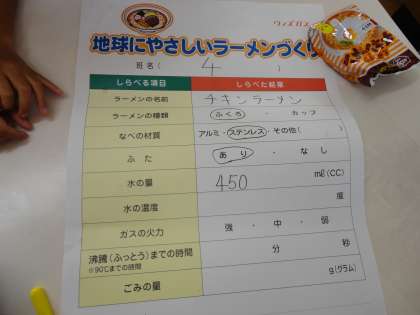 ウィズガス
地球にやさしいラーメンづくり
班名( 4 )
しらべる項目 しらべた結果
ラーメンの名前 チキンラーメン
ラーメンの種類 ふくろ ・ カップ
なべの材質 アルミ・ステンレス・その他( )
ふた あり ・ なし
水の量 450 mℓ(CC)
水の温度 度
ガスの火力 強 ・ 中 ・ 弱
沸騰(ふっとう)までの時間 分 秒
※90℃までの時間
ごみの量 g(グラム)